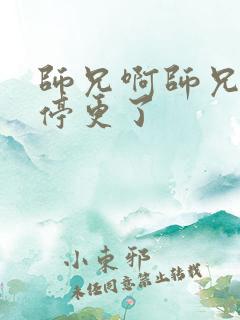 師兄啊師兄
停更了
小東邪
未経同意禁止转载